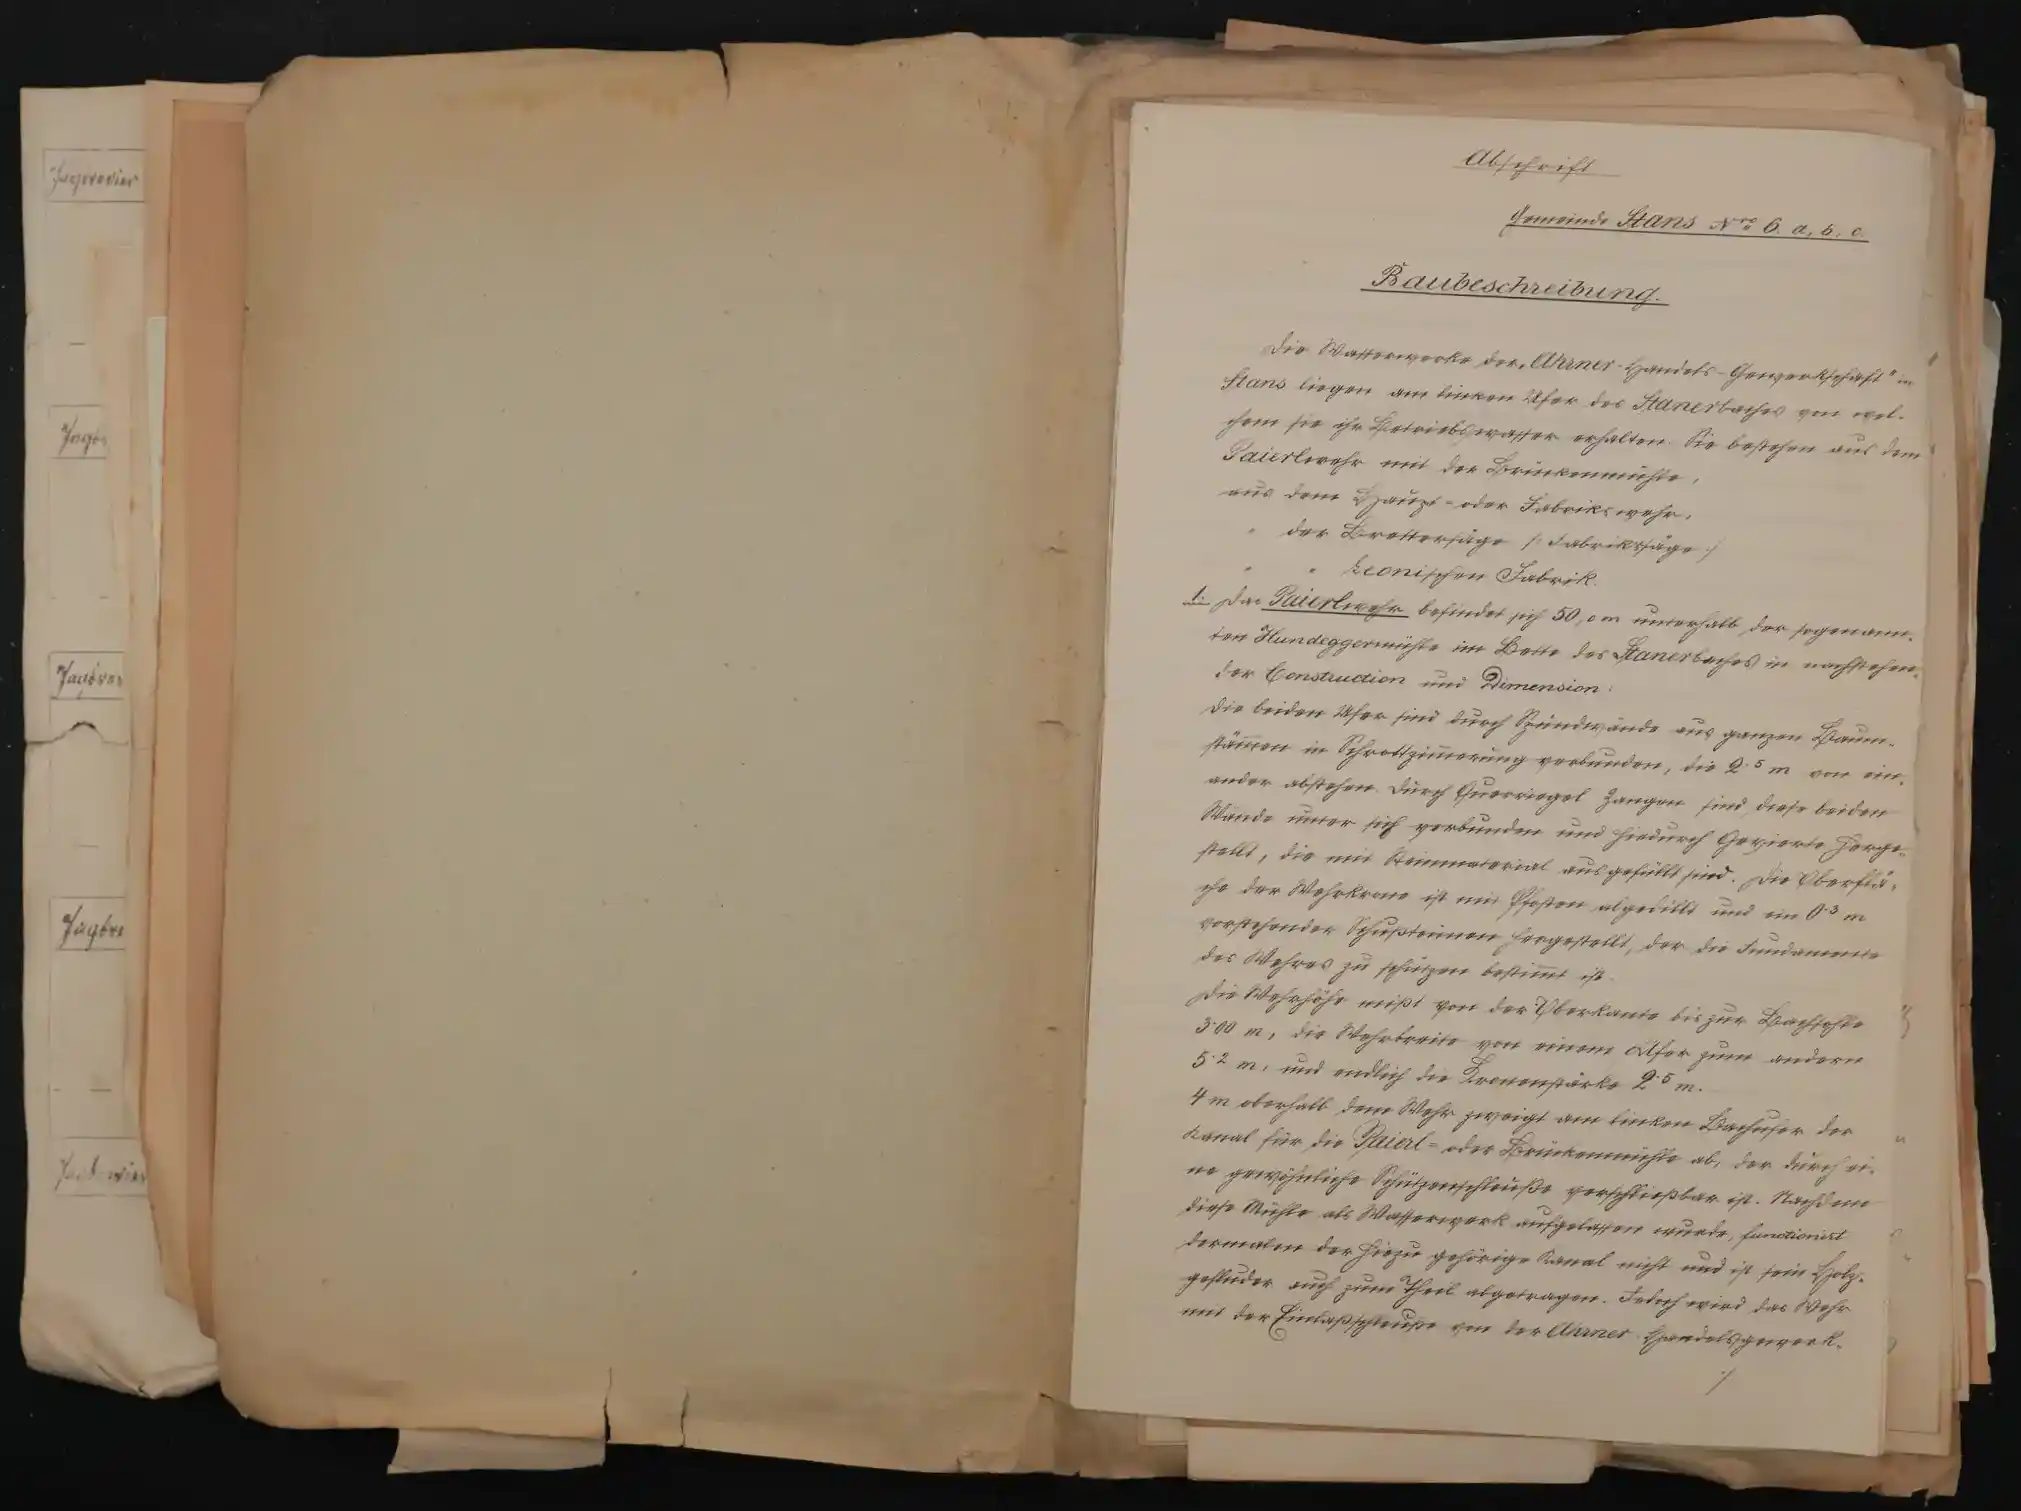 Jagdrevier
Jagdre
Jagdrev
Jagdre
Abschrift
Gemeinde Stans Nro 6. a, b, c.
Baubeschreibung.
Die Wasserwerke der „Ahrner-Handels-Gewerkschaft" in
Stans liegen am linken Ufer des Stanerbaches von wel-
chem sie ihr Betriebswasser erhalten. Sie bestehen aus dem
Paierlwehr mit der Brückenmühle,
aus dem Haupt- oder Fabrikswehr,
" der Brettersäge /: Fabrikssäge :/
" " Leonischen Fabrik.
1. Das Paierlwehr befindet sich 50,0 m unterhalb der sogenann-
ten Hundeggermühle im Bette des Stanerbaches in nachstehen-
der Construction und Dimension:
Die beiden Ufer sind durch Spundwände aus ganzen Baum-
stämmen in Schrottzimmerung verbunden, die 2·5 m von ein-
ander abstehen. Durch Querriegel Zangen sind diese beiden
Wände unter sich verbunden und hiedurch Gevierte herge-
stellt, die mit Steinmaterial ausgefüllt sind. Die Oberflä-
che der Wehrkrone ist mit Pfosten abgedillt und ein 0·3 m
vorstehender Schußtennen hergestellt, der die Fundamente
des Wehres zu schützen bestimmt ist.
Die Wehrhöhe mißt von der Oberkante bis zur Bachsohle
3·00 m, die Wehrbreite von einem Ufer zum andern
5·2 m, und endlich die Kronenstärke 2·5 m.
4 m oberhalb dem Wehr zweigt am linken Bachufer der
Kanal für die Paierl- oder Brückenmühle ab, der durch ei-
ne gewöhnliche Schützenschleuße verschließbar ist. Nachdem
diese Mühle als Wasserwerk aufgelassen wurde, functioniert
dermalen der hiezu gehörige Kanal nicht und ist sein Holz-
gefluder auch zum Theil abgetragen. Jedoch wird das Wehr
mit der Einlaßschleuße von der Ahrner Handelsgewerk-
./